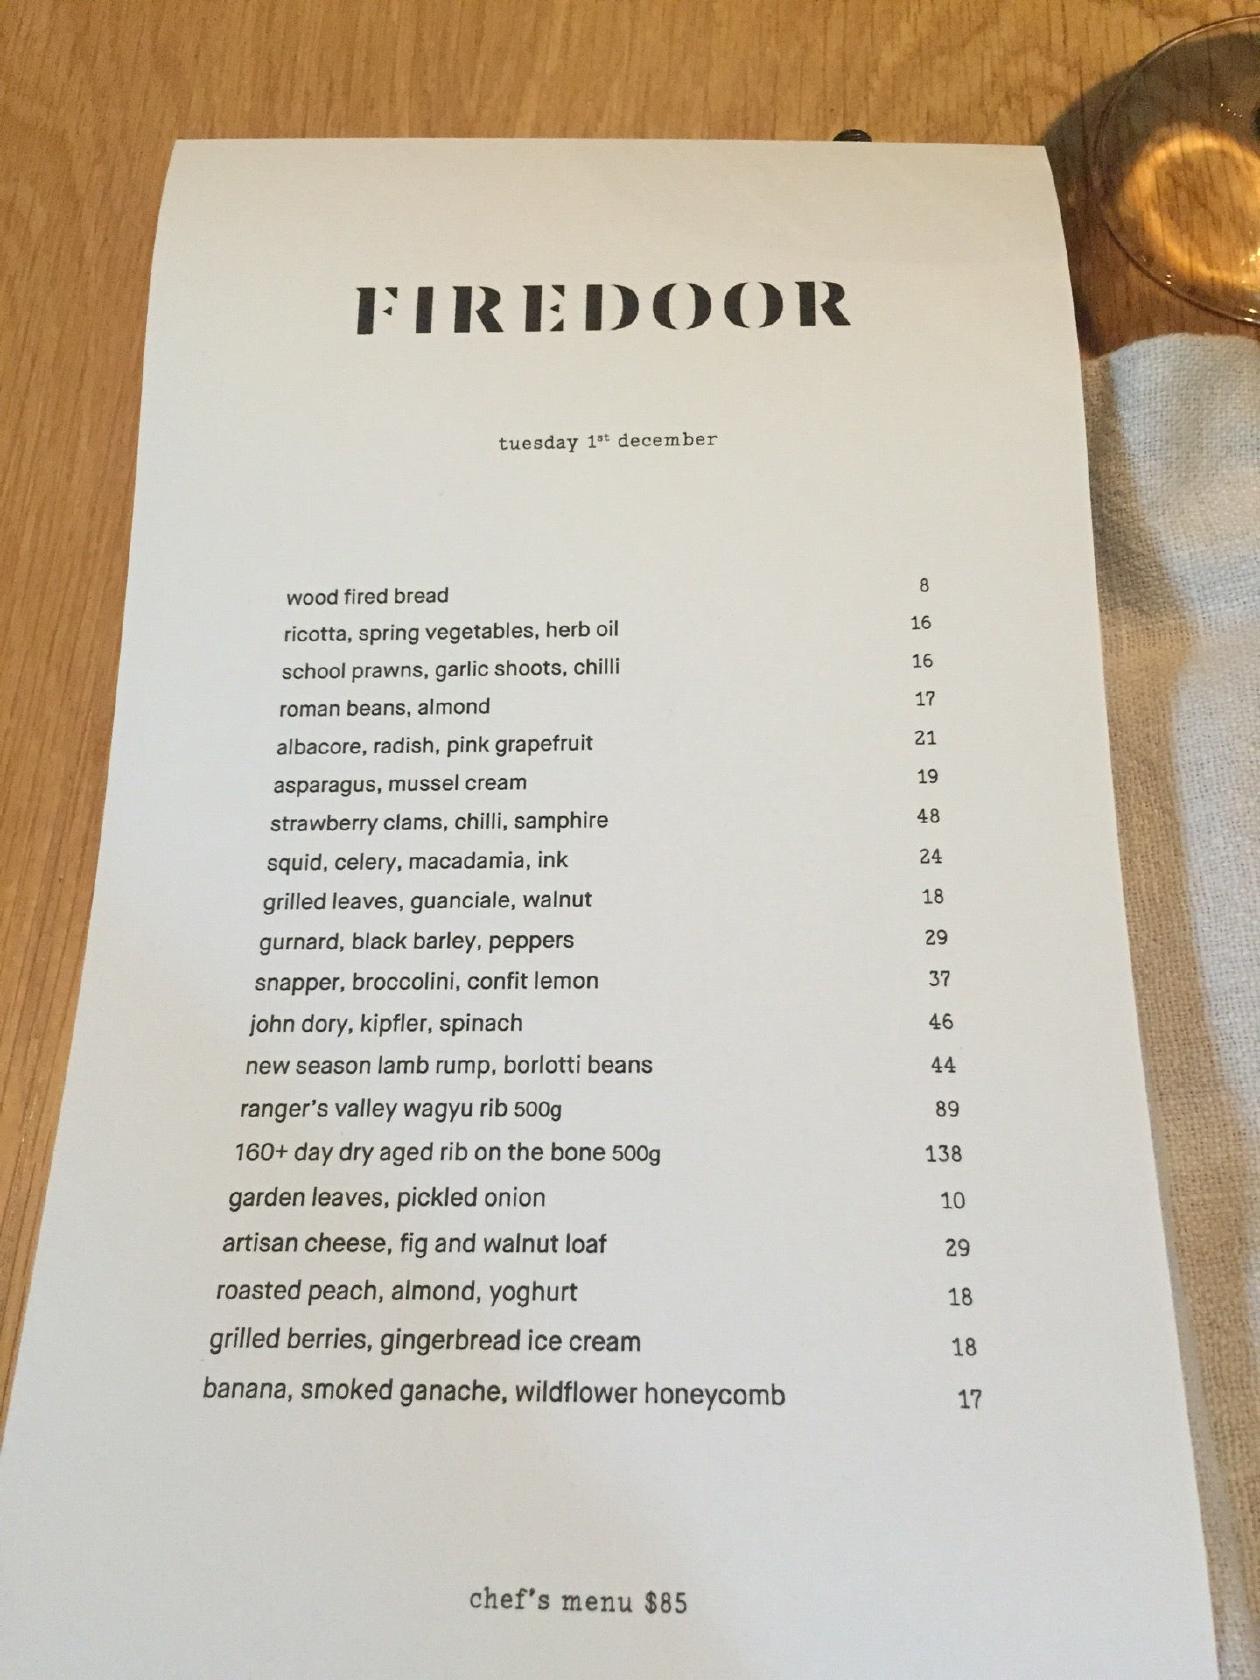 FIREDOOR
tuesday 1st december
wood fired bread 8
ricotta, spring vegetables, herb oil 16
school prawns, garlic shoots, chilli 16
roman beans, almond 17
albacore, radish, pink grapefruit 21
asparagus, mussel cream 19
strawberry clams, chilli, samphire 48
squid, celery, macadamia, ink 24
grilled leaves, guanciale, walnut 18
gurnard, black barley, peppers 29
snapper, broccolini, confit lemon 37
john dory, kipfler, spinach 46
new season lamb rump, borlotti beans 44
ranger's valley wagyu rib 500g 89
160+ day dry aged rib on the bone 500g 138
garden leaves, pickled onion 10
artisan cheese, fig and walnut loaf 29
roasted peach, almond, yoghurt 18
grilled berries, gingerbread ice cream 18
banana, smoked ganache, wildflower honeycomb 17
chef's menu $85